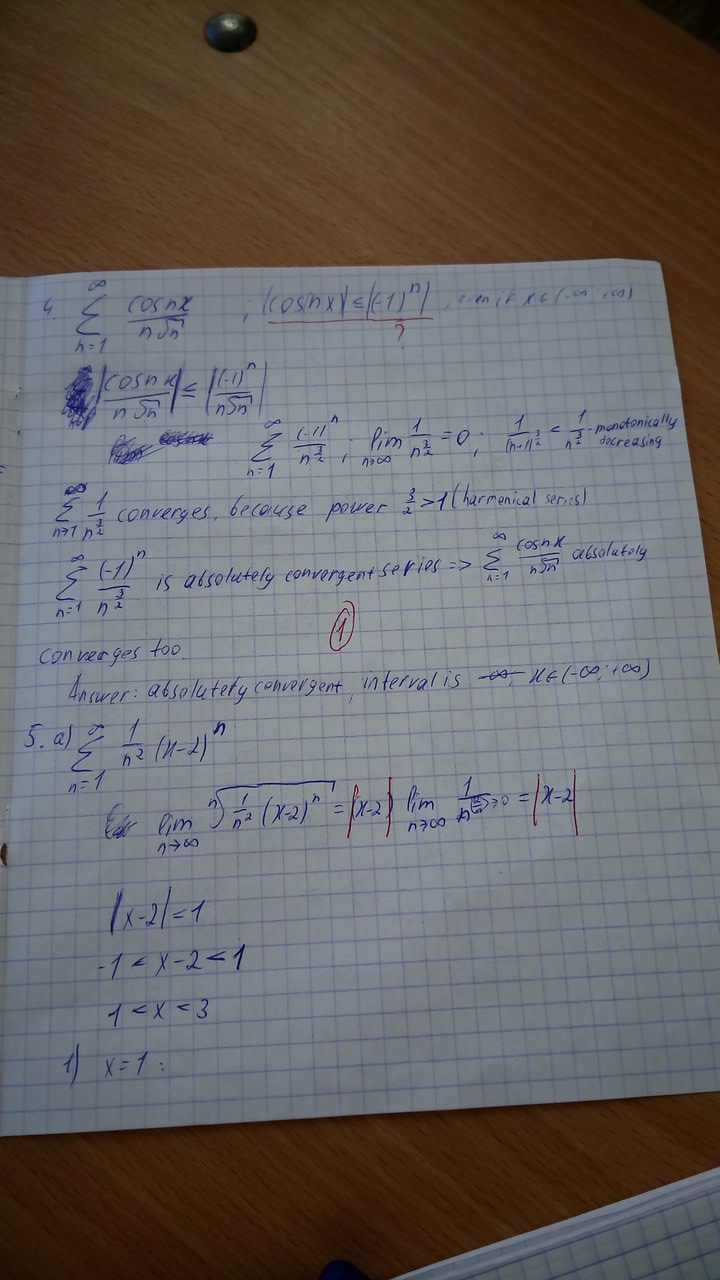 4. ∞ Σ n=1 cosnx / n√n , |cosnx| ≤ |(-1)^n| , x ∈ (-∞; +∞)
?
|cosnx / n√n| ≤ |(-1)^n / n√n|
∞ Σ n=1 (-1)^n / n^(3/2) ; lim n→∞ 1/n^(3/2) = 0 ; 1/(n+1)^(3/2) < 1/n^(3/2) - monotonically decreasing
∞ Σ n=1 1/n^(3/2) converges, because power 3/2 > 1 (harmonical series)
∞ Σ n=1 (-1)^n / n^(3/2) is absolutely convergent series => ∞ Σ n=1 cosnx / n√n absolutely
1
converges too.
Answer: absolutely convergent, interval is x ∈ (-∞; +∞)
5. a) ∞ Σ n=1 1/n² (x-2)^n
lim n→∞ n√(1/n² (x-2)^n) = |x-2| lim n→∞ = |x-2|
|x-2| = 1
-1 < x-2 < 1
1 < x < 3
1) x = 1 :